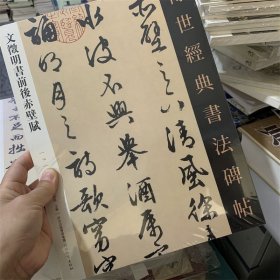 世經典書法碑帖
赤壁之下清風徐
水波不興舉酒屬
誦明月之詩歌窈
文徵明書前後赤壁賦